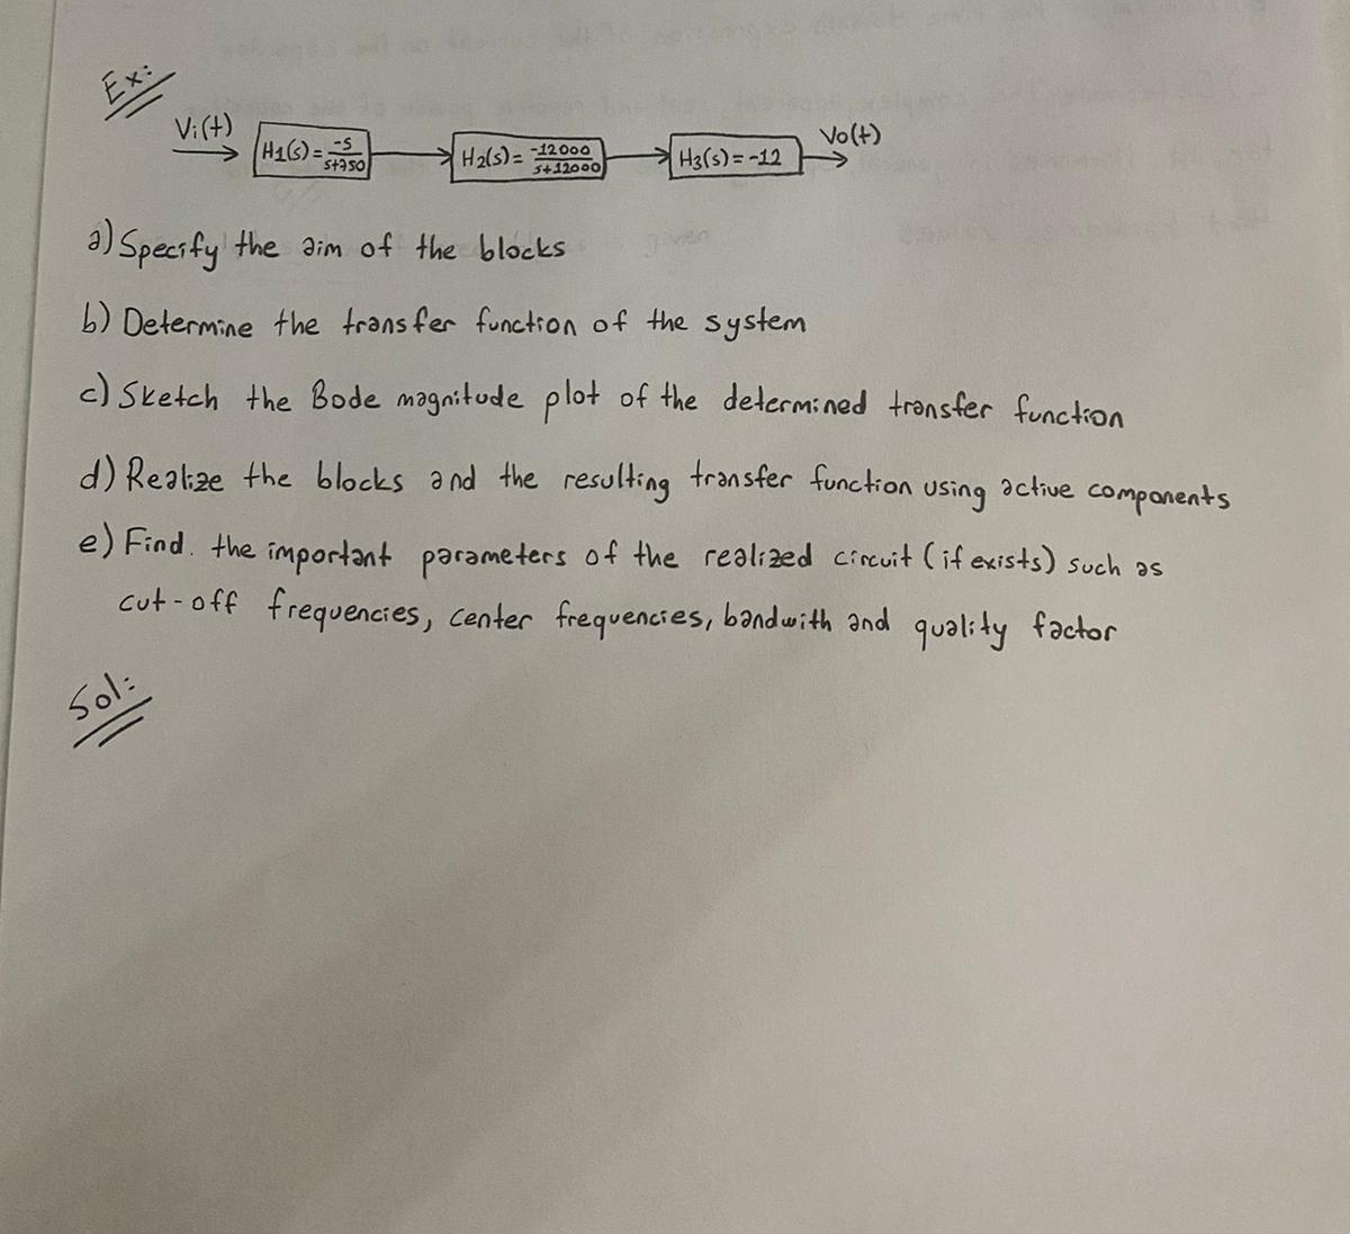 Ex:
Vi(t) H1(s)=-s/s+750 H2(s)=-12000/s+12000 H3(s)=-12 Vo(t)
a) Specify the aim of the blocks
b) Determine the transfer function of the system
c) Sketch the Bode magnitude plot of the determined transfer function
d) Realize the blocks and the resulting transfer function using active components
e) Find. the important parameters of the realized circuit (if exists) such as
cut-off frequencies, center frequencies, bandwith and quality factor
Sol: